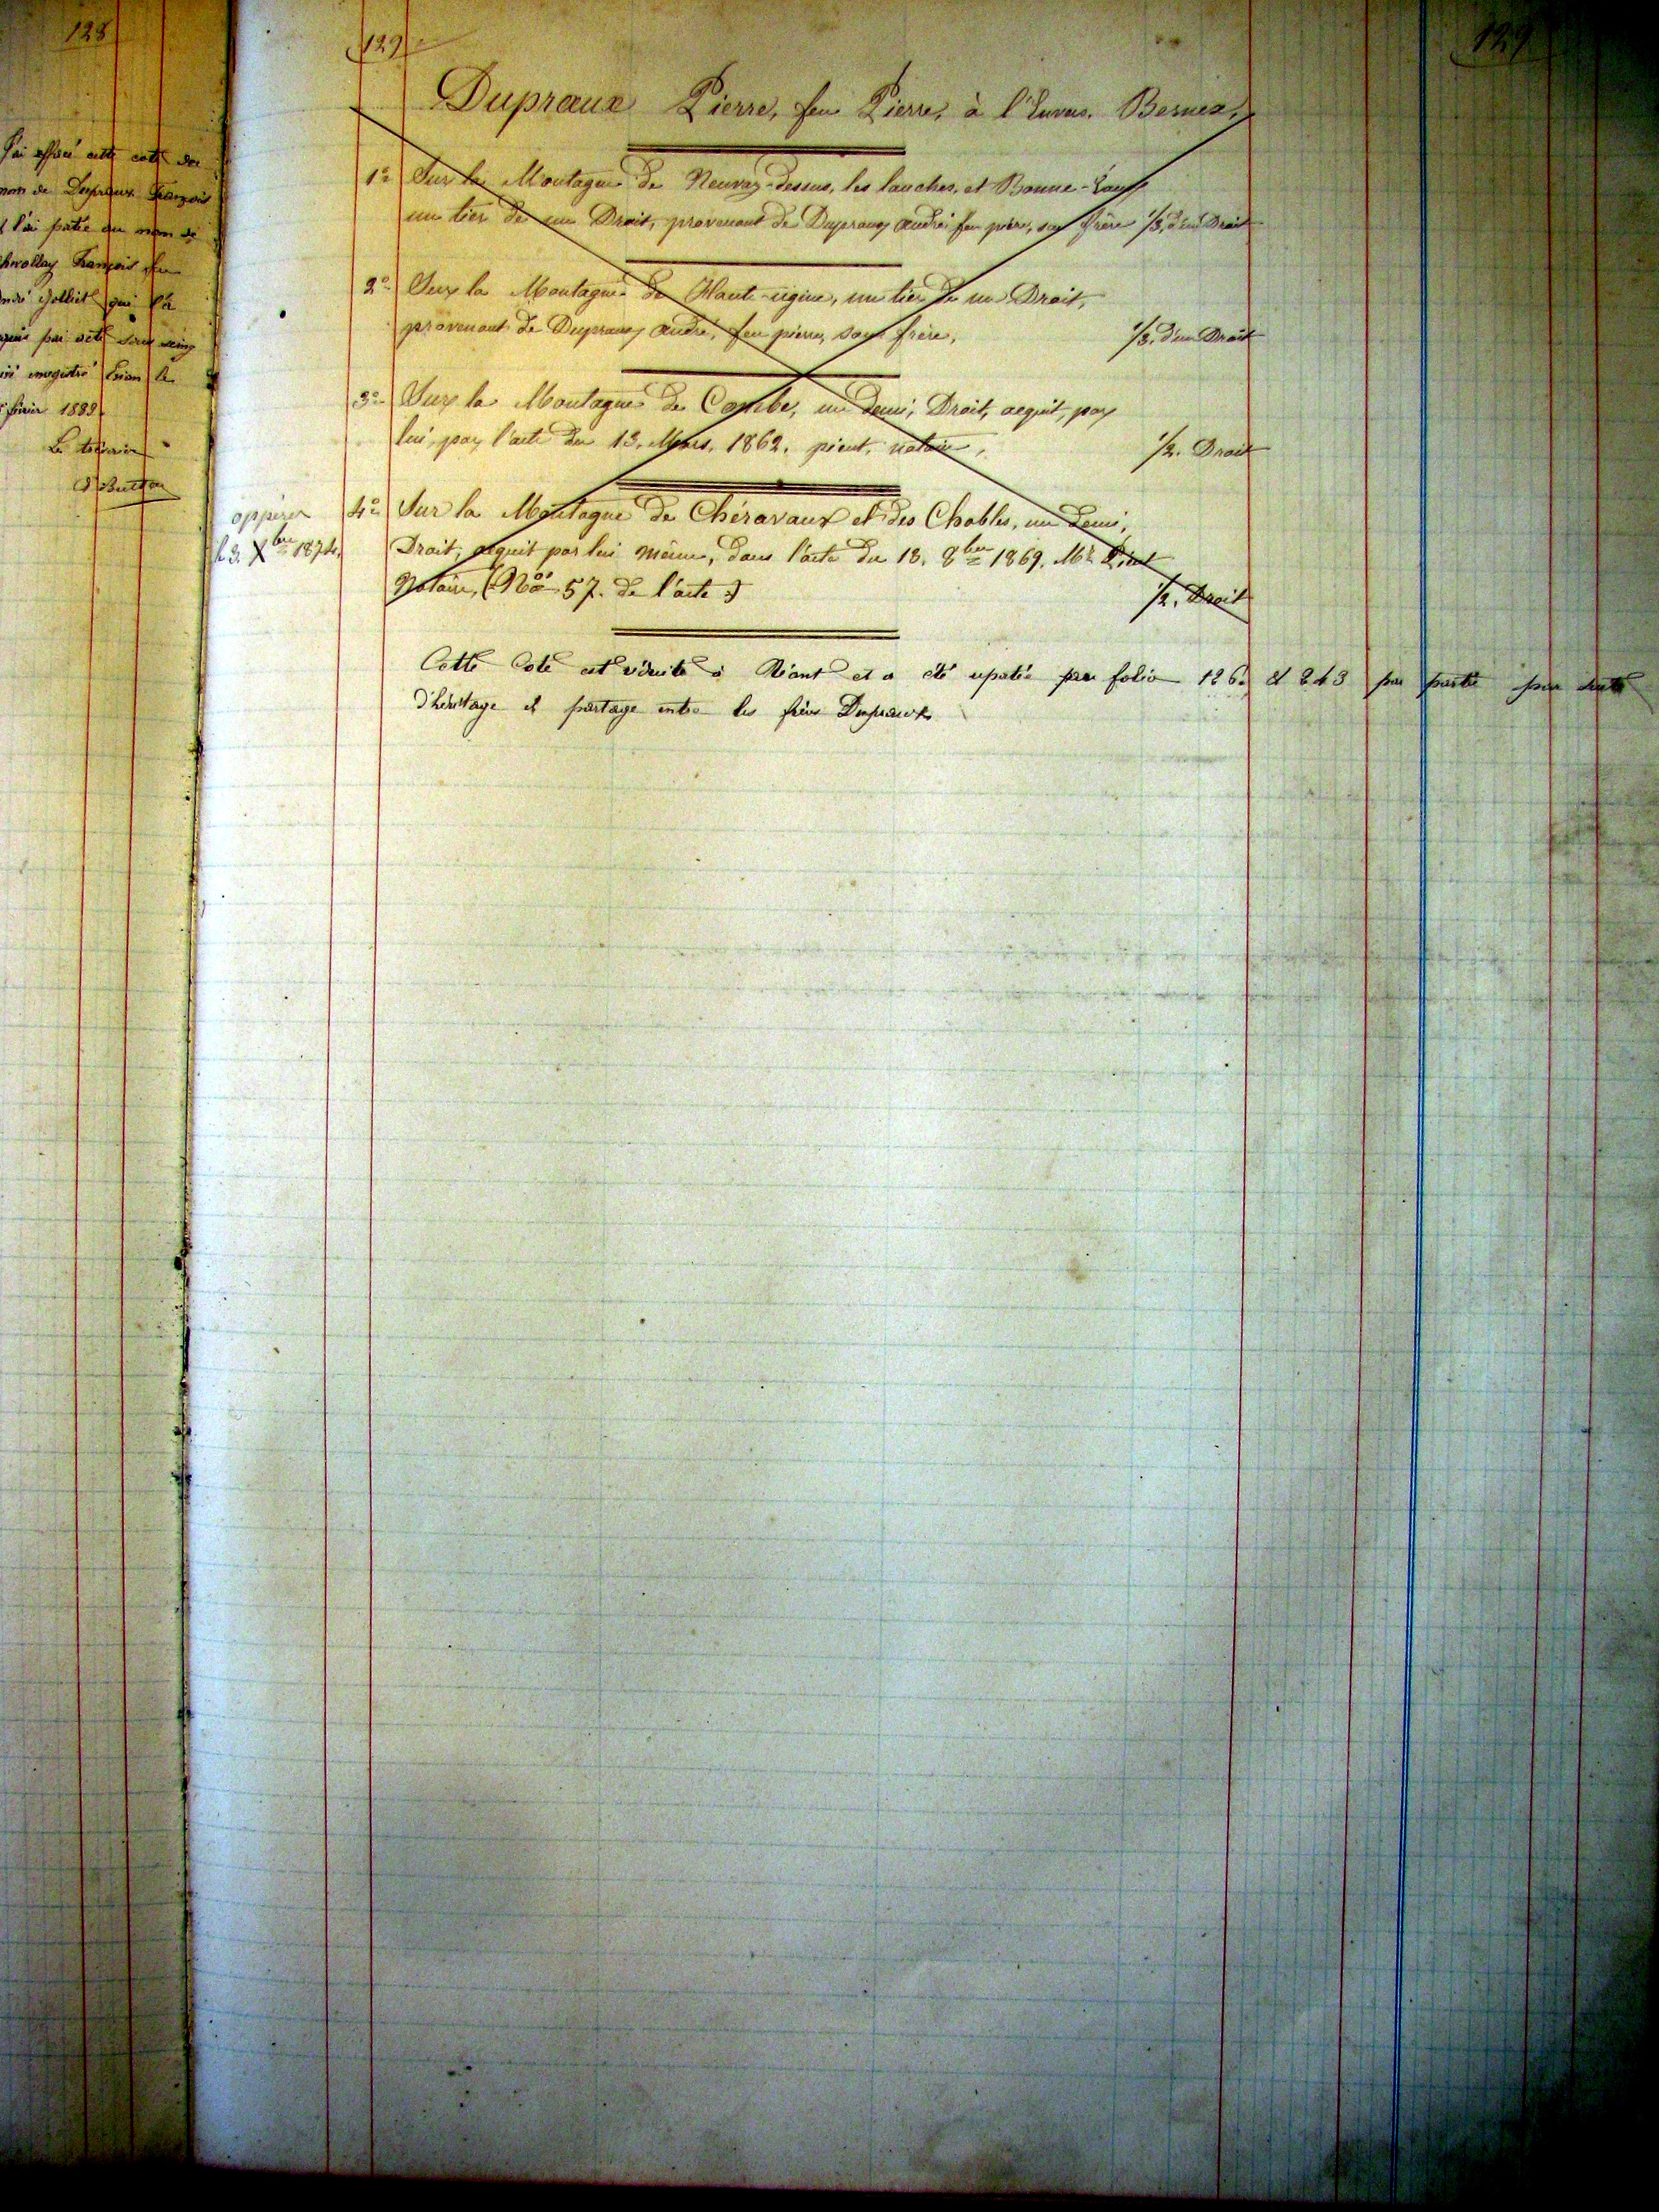 128
J'ai effacé cette cote du
nom de Dupraux François
l'ai portée au nom de
François feu
Jolliet qui l'a
par acte sous seing
enregistré Evian le
février 1889
Le trésorier
129
129
Dupraux Pierre, feu Pierre, à l'Envers. Bernex,
1º Sur la Montagne de Neuvaz-dessus, les lanches, et Bonne-Eau,
un tier de un Droit, provenant de Dupraux andré feu pierre, son frère 1/3. d'un Droit
2º Sur la Montagne de Haute-ugine, un tier de un Droit,
provenant de Dupraux andré, feu pierre, son frère, 1/3. d'un Droit
3º Sur la Montagne de Combe, un demi, Droit, acquit, par
lui, par l'acte du 13. Mars. 1862. picut, notaire, 1/2. Droit
oppérer
le 3. Xbre 1874.
4º Sur la Montagne de Chéravaux et des Chables, un demi,
Droit, acquit par lui même, dans l'acte du 13. 8bre 1869. Me Picut
Notaire, (Nº 57. de l'acte) 1/2. Droit
Cette Cote est réduite à Néant et a été portée folio 126 et 243 par partie par suite
d'héritage et partage entre les frères Dupraux